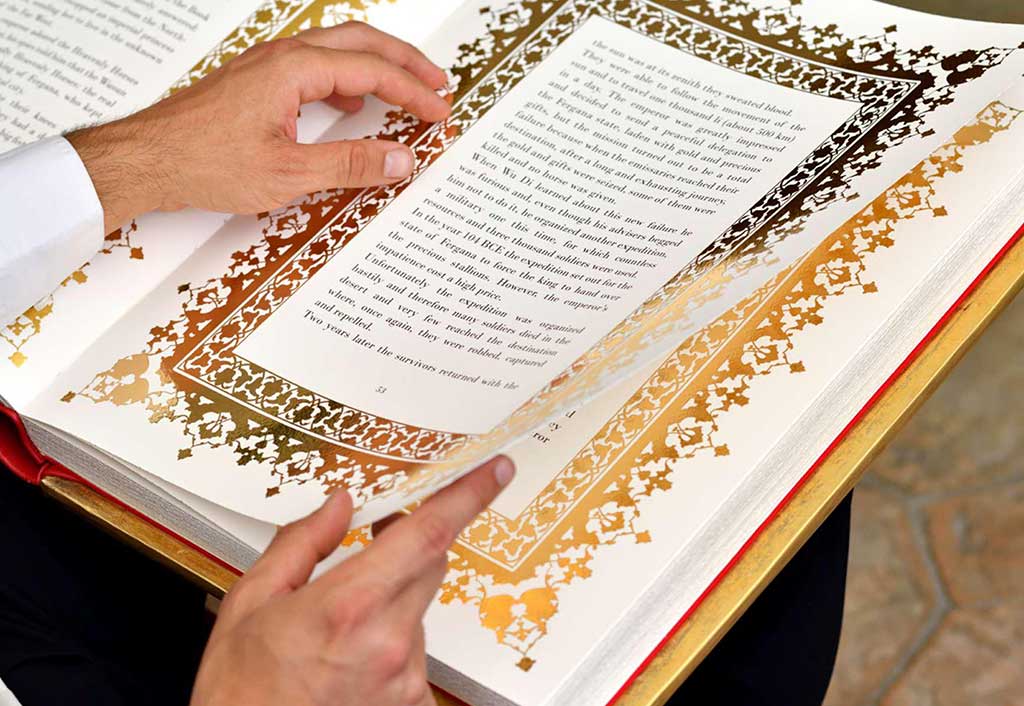 the Book
from the North,
an imperial princess
in the unknown
West.
about the Heavenly Horses
said that the Wusun
Heavenly Horses; the real
of Fergana, who kept
city.
they knew
the sun was at its zenith they sweated blood.
They were able to follow the movement of the
sun and to travel one thousand li (about 500 km)
in a day. The emperor was greatly impressed
and decided to send a peaceful delegation to
the Fergana state, laden with gold and precious
gifts, but the mission turned out to be a total
failure because when the emissaries reached their
destination, after a long and exhausting journey,
the gold and gifts were seized, some of them were
killed and no horse was given.
When Wu Di learned about this new failure he
was furious and, even though his advisers begged
him not to do it, he organized another expedition,
a military one this time, for which countless
resources and three thousand soldiers were used.
In the year 104 BCE, the expedition set out for the
state of Fergana to force the king to hand over
the precious stallions. However, the emperor's
impatience cost a high price.
Unfortunately the expedition was organized
hastily and therefore many soldiers died in the
desert and very few reached the destination
where, once again, they were robbed, captured
and repelled.
Two years later the survivors returned with the
53
d
ey
ror